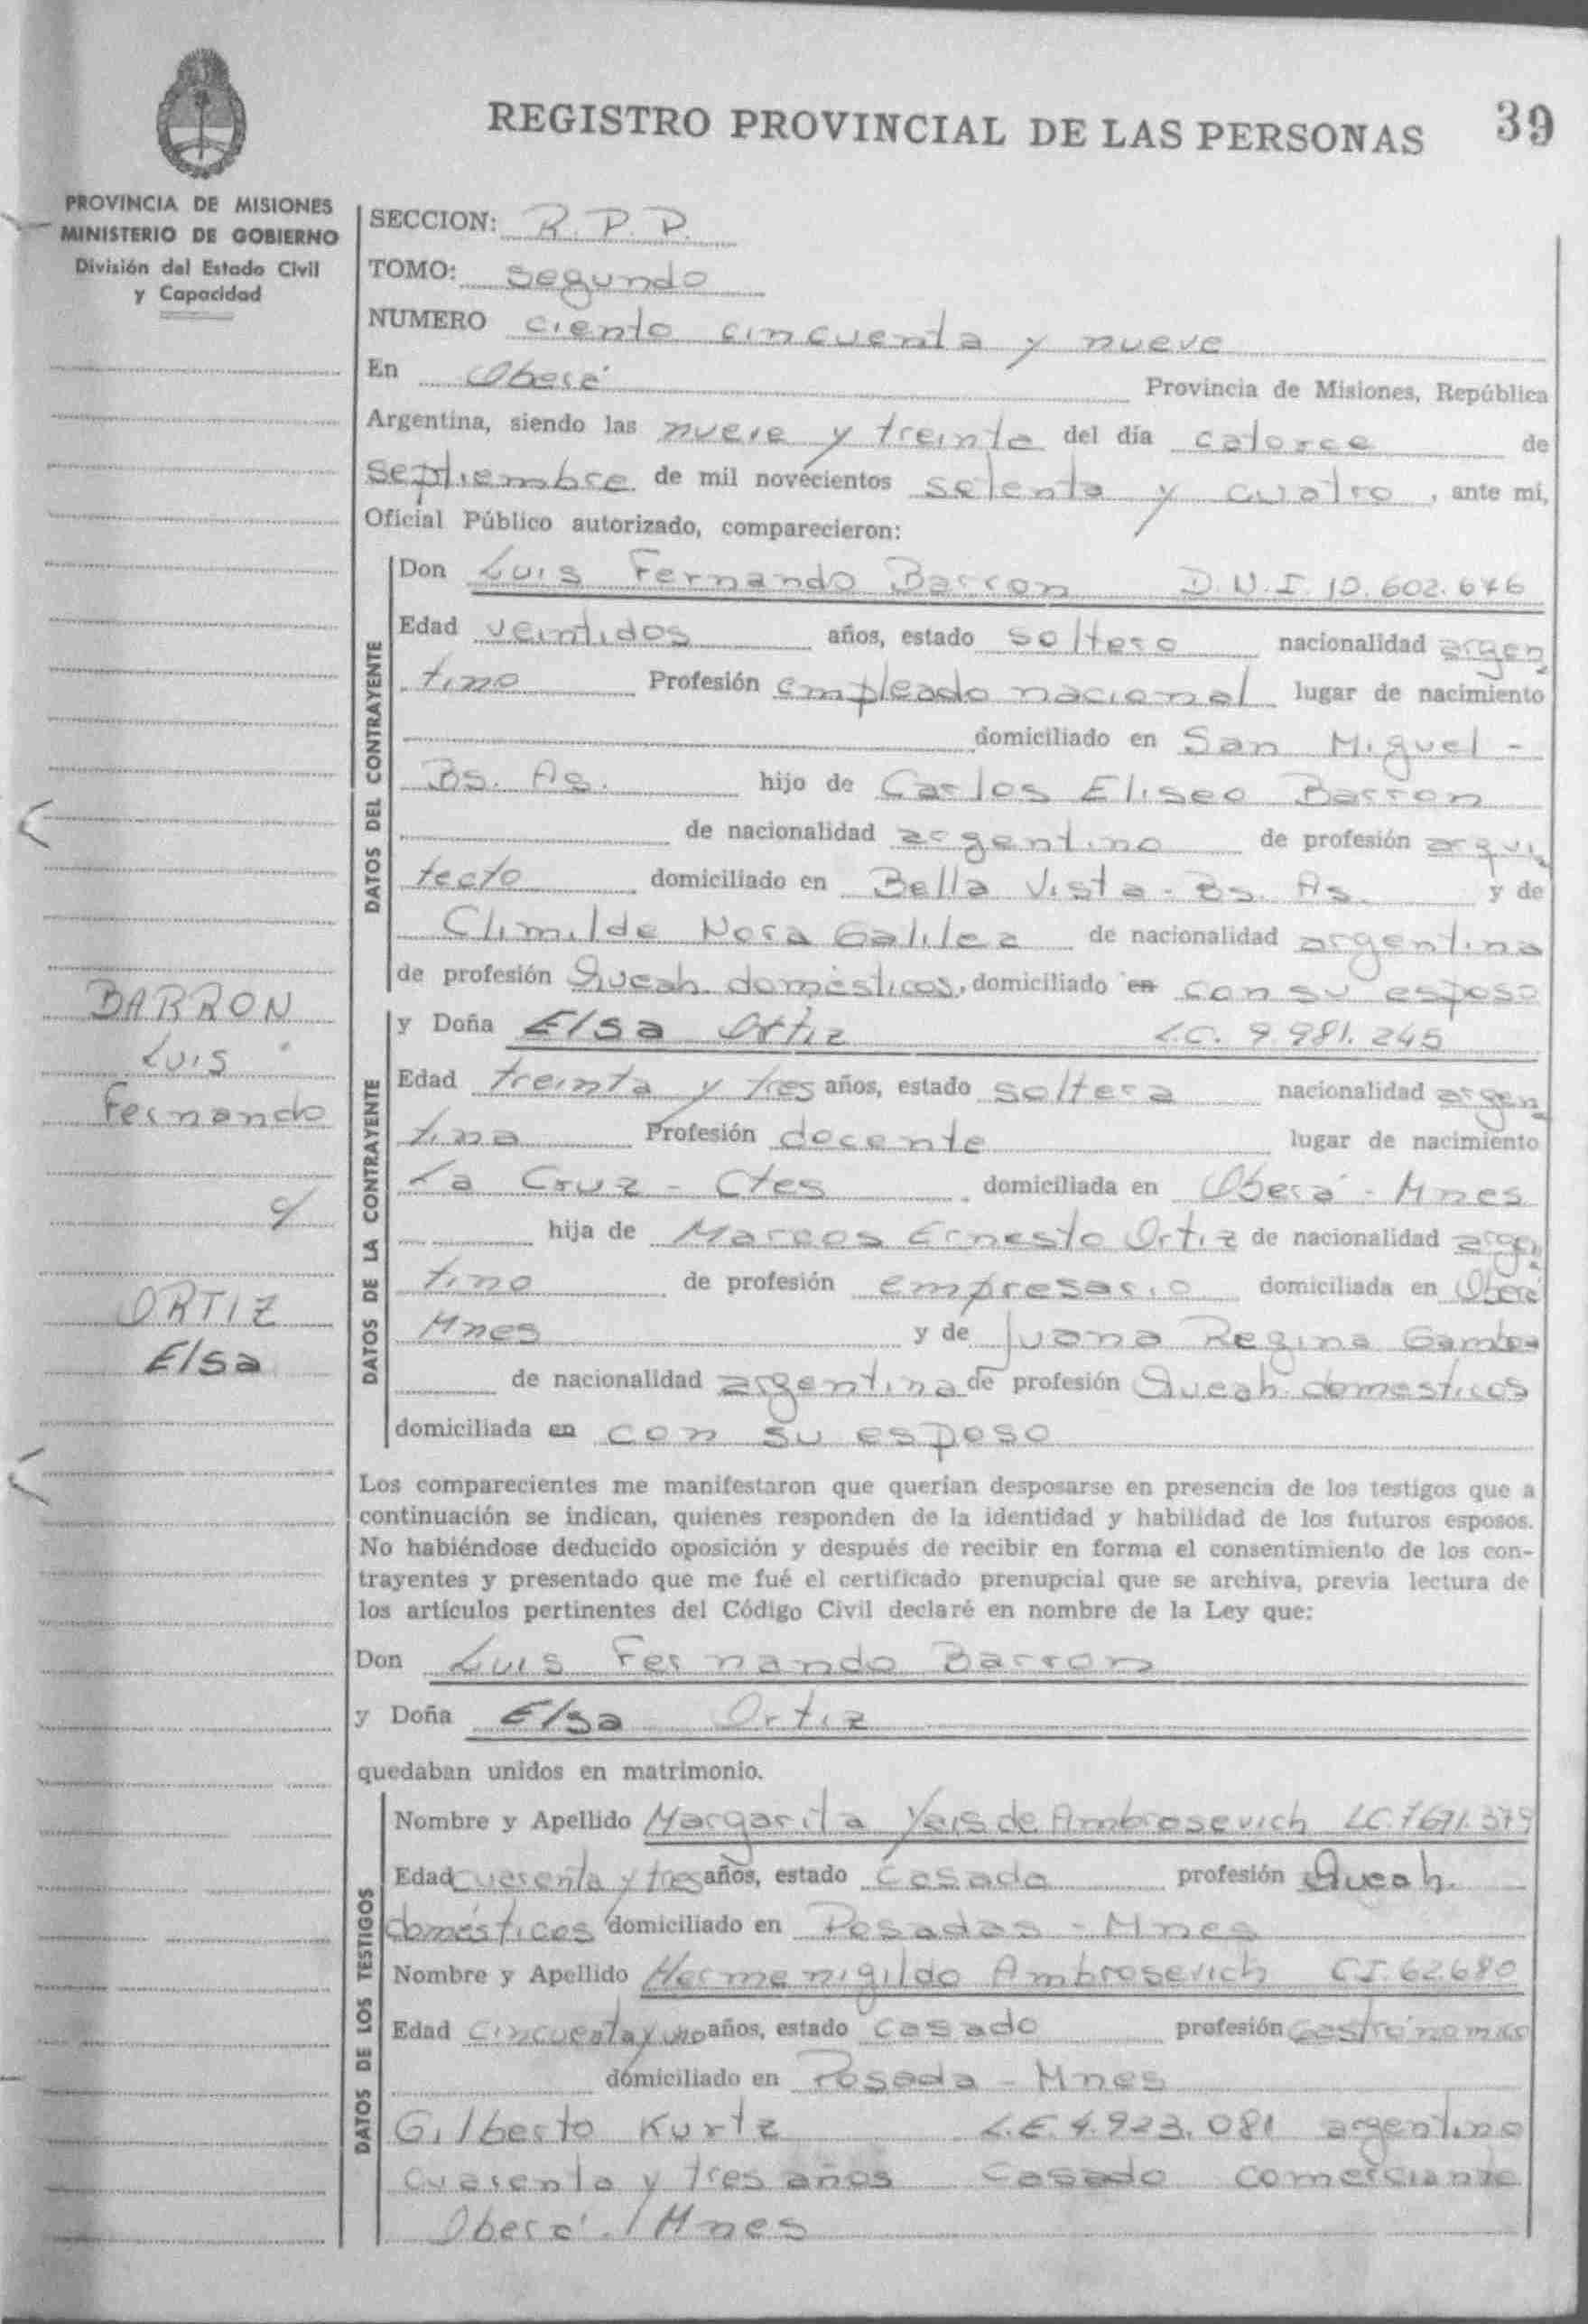 REGISTRO PROVINCIAL DE LAS PERSONAS 39
PROVINCIA DE MISIONES
MINISTERIO DE GOBIERNO
División del Estado Civil
y Capacidad
SECCION: R. P. P.
TOMO: segundo
NUMERO ciento cincuenta y nueve
En Oberá Provincia de Misiones, República
Argentina, siendo las nueve y treinta del día catorce de
septiembre de mil novecientos setenta y cuatro, ante mí,
Oficial Público autorizado, comparecieron:
DATOS DEL CONTRAYENTE
Don Luis Fernando Barron D.N.I. 10.602.676
Edad veintidos años, estado soltero nacionalidad argen
tino Profesión empleado nacional lugar de nacimiento
domiciliado en San Miguel -
Bs. As. hijo de Carlos Eliseo Barron
de nacionalidad argentino de profesión arqui
tecto domiciliado en Bella Vista - Bs. As. y de
Climilde Nora Galilea de nacionalidad argentina
de profesión Queah. domésticos, domiciliado en con su esposo
DATOS DE LA CONTRAYENTE
y Doña Elsa Ortiz L.C. 9.981.245
Edad treinta y tres años, estado soltera nacionalidad argen
tina Profesión docente lugar de nacimiento
La Cruz - Ctes domiciliada en Oberá - Mnes
hija de Marcos Ernesto Ortiz de nacionalidad argen
tino de profesión empresario domiciliada en Oberá
Mnes y de Juana Regina
de nacionalidad argentina de profesión Queah. domesticos
domiciliada en con su esposo
BARRON
Luis
Fernando
c/
ORTIZ
Elsa
Los comparecientes me manifestaron que querían desposarse en presencia de los testigos que a
continuación se indican, quienes responden de la identidad y habilidad de los futuros esposos.
No habiéndose deducido oposición y después de recibir en forma el consentimiento de los con-
trayentes y presentado que me fué el certificado prenupcial que se archiva, previa lectura de
los artículos pertinentes del Código Civil declaré en nombre de la Ley que:
Don Luis Fernando Barron
y Doña Elsa Ortiz
quedaban unidos en matrimonio.
DATOS DE LOS TESTIGOS
Nombre y Apellido Margarita de Ambrosevich LC. 7.691.379
Edad cuarenta y tres años, estado casada profesión Queah.
domésticos domiciliado en Posadas - Mnes
Nombre y Apellido Hermenigildo Ambrosevich C.I. 62.680
Edad cincuenta y uno años, estado casado profesión Gastrónomico
domiciliado en Posada - Mnes
Gilberto Kurtz L.E. 4.923.081 argentino
cuarenta y tres años casado comerciante
Oberá / Mnes